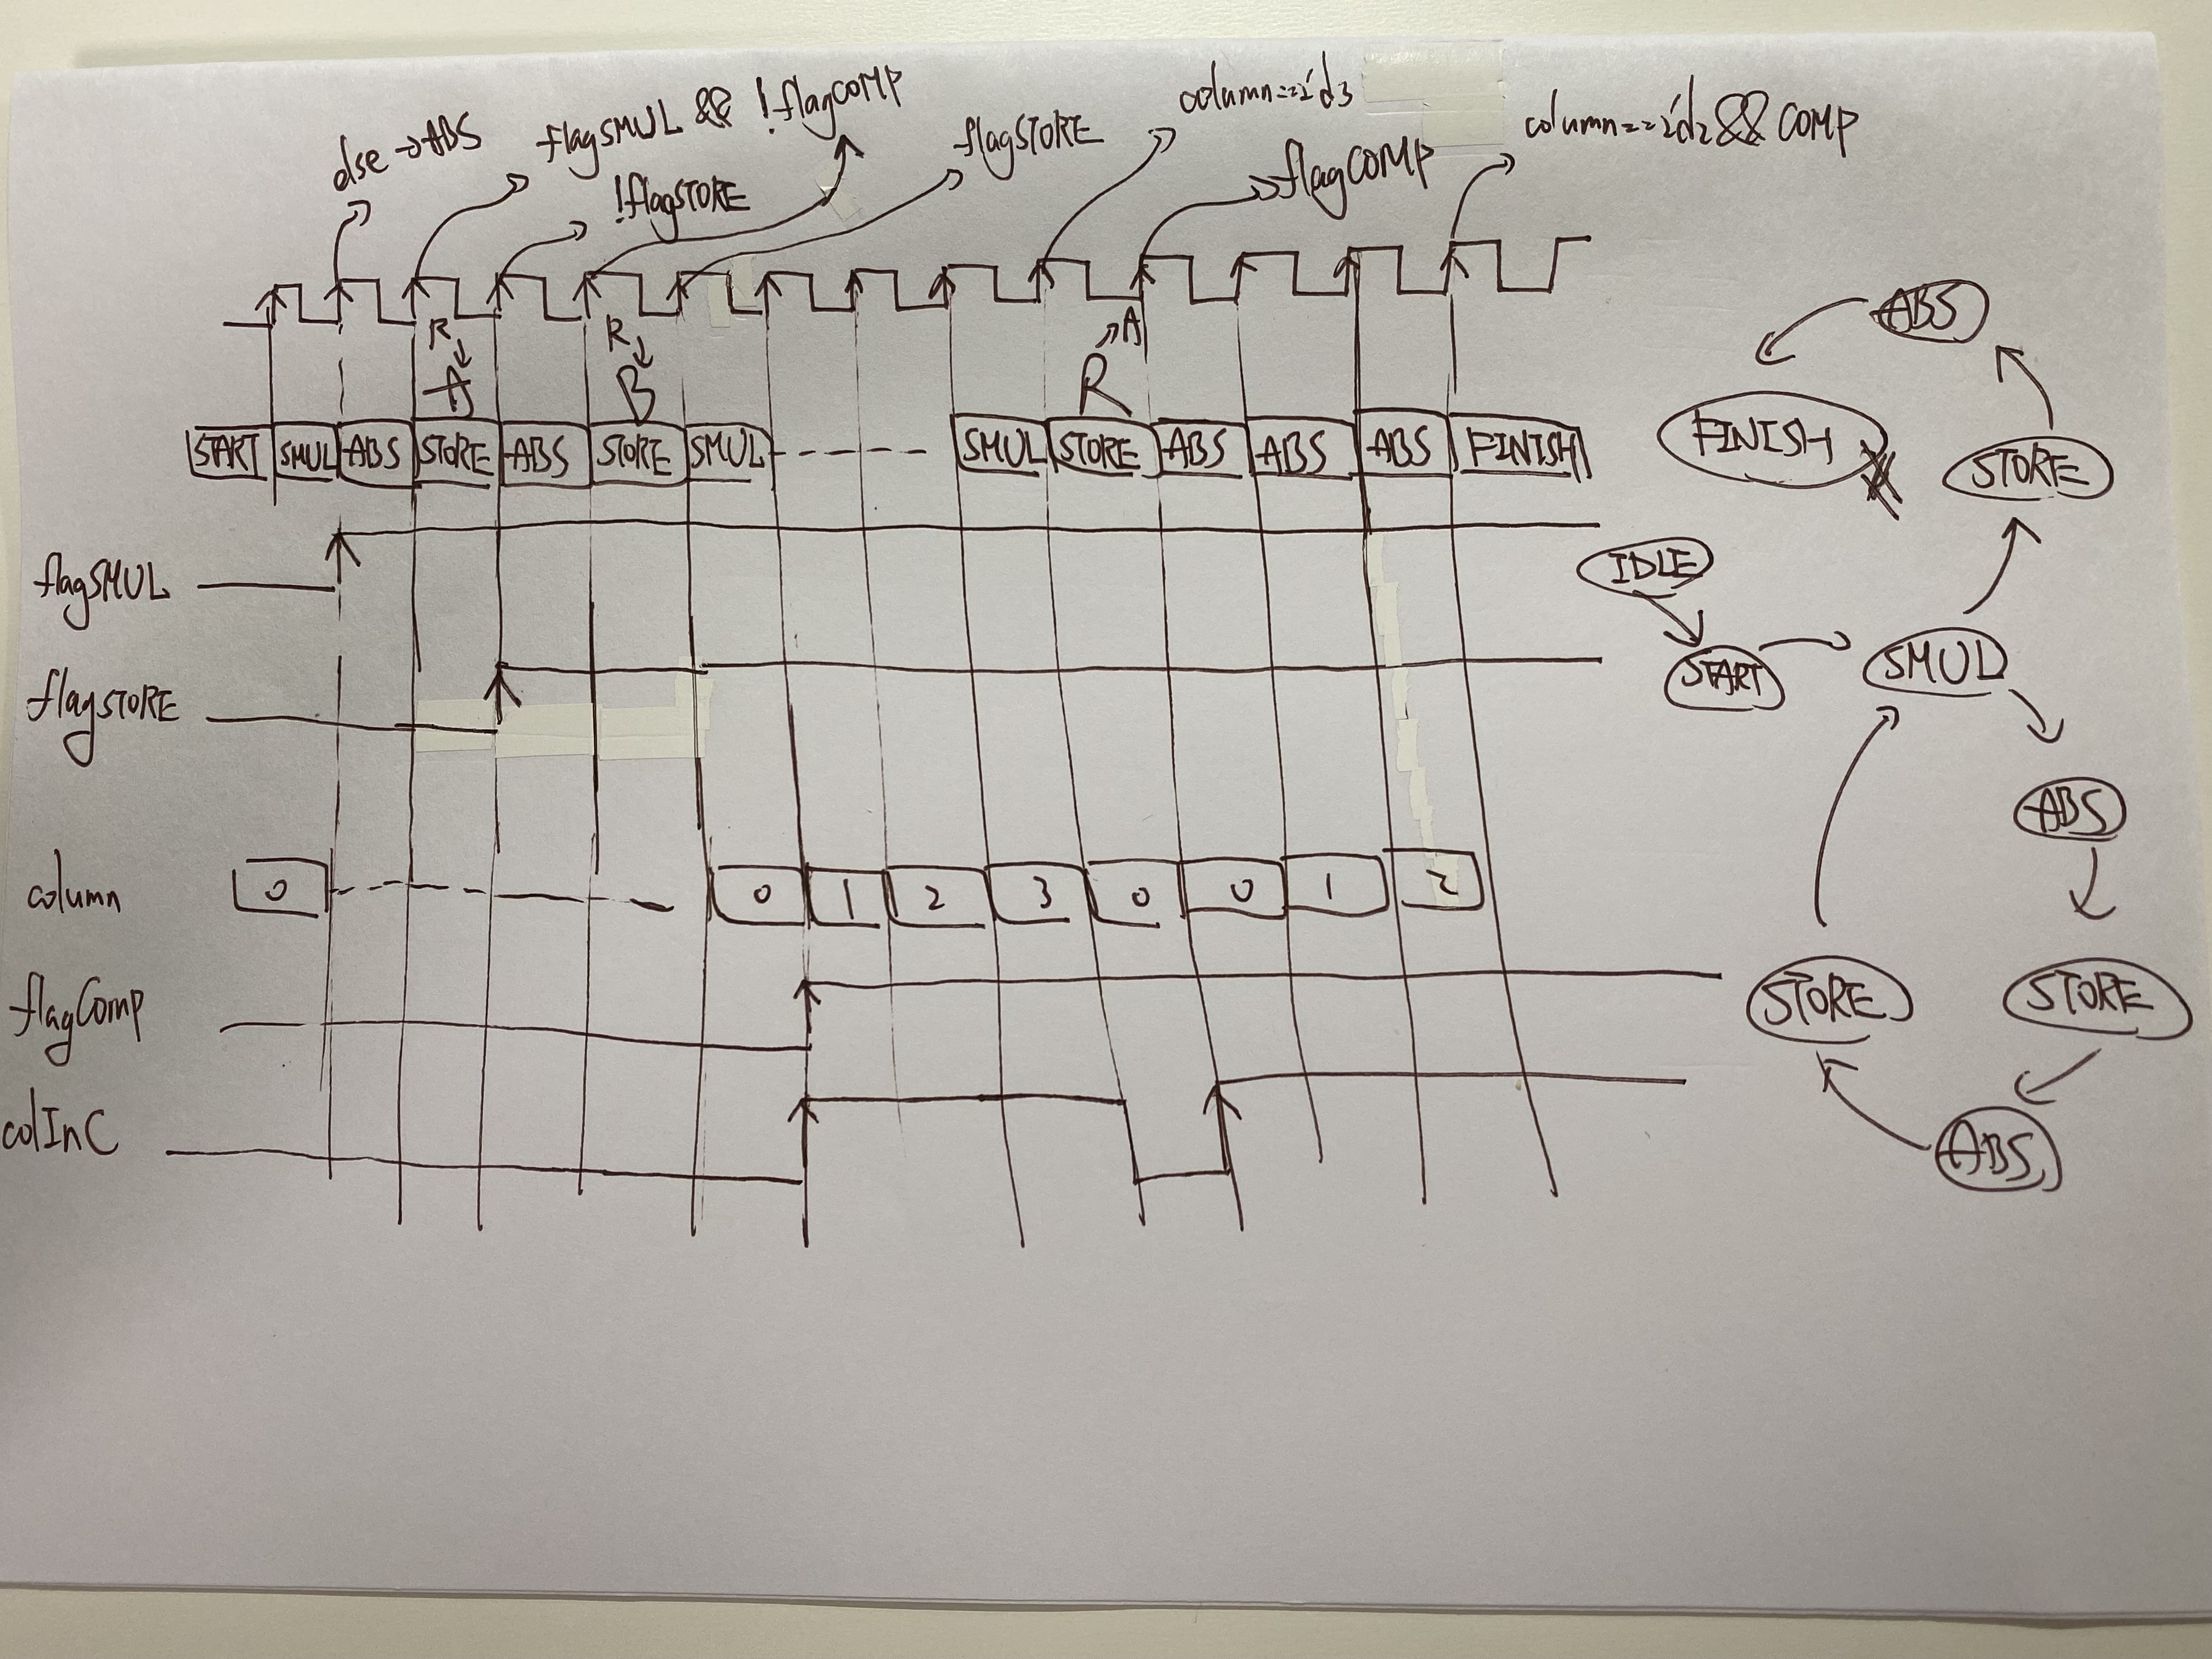 else → ABS
flagSMUL && !flagCOMP
!flagSTORE
flagSTORE
column==2'd3
flagCOMP
column==2'd2 && COMP
R
A
R
B
R
A
START SMUL ABS STORE ABS STORE SMUL SMUL STORE ABS ABS ABS FINISH
flagSMUL
flagSTORE
column 0 0 1 2 3 0 0 1 2
flagComp
colInC
ABS
FINISH
STORE
IDLE
START
SMUL
ABS
STORE
STORE
ABS